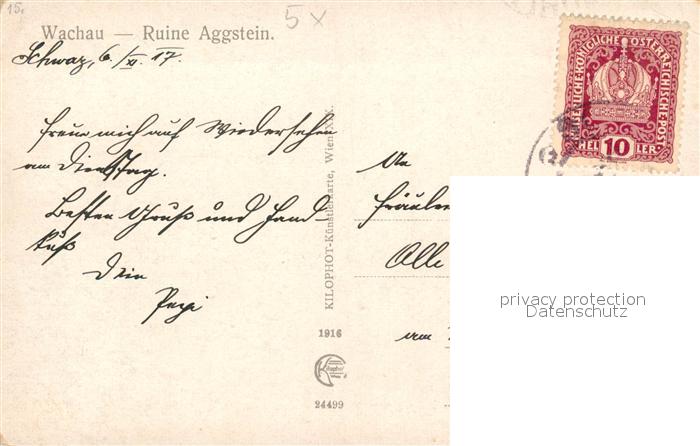 15.
5 x
Wachau — Ruine Aggstein.
Schwaz, 6./XI. 17.
Freue mich auf Wiedersehen
am Dienstag.
Besten Gruß und Hand-
kuß
Dein
Pepi
KILOPHOT-Künstlerkarte, Wien XIX.
1916
Kilophot
24499
KAISERLICHE KÖNIGLICHE ÖSTERREICHISCHE POST
HEL 10 LER
An
Fräulein
Alle
am
privacy protection
Datenschutz